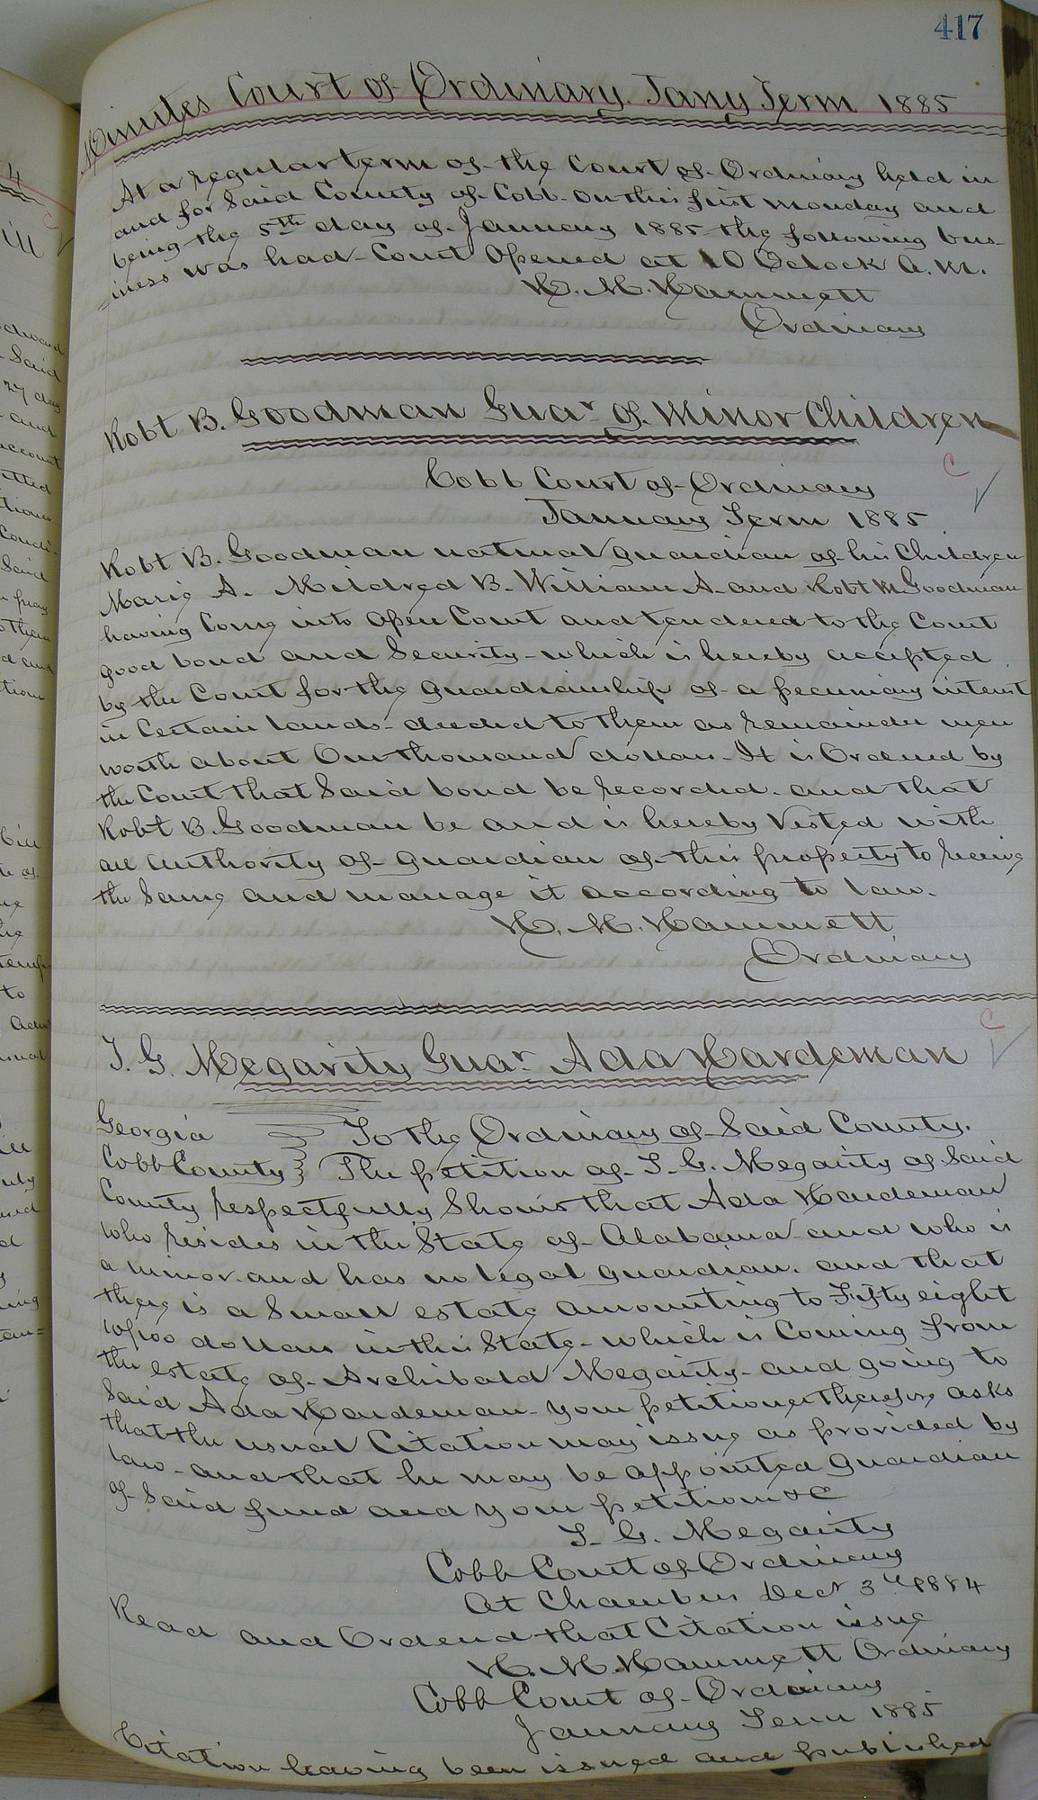 417
Minutes Court of Ordinary. Jany Term 1885
At a regular term of the Court of Ordinary held in
and for Said County of Cobb on this first monday and
being the 5th day of January 1885 the following bus-
iness was had - Court Opened at 10 Oclock A. M.
H. M. Hammett
Ordinary
Robt B. Goodman Guar. of Minor Children
C
Cobb Court of Ordinary
January Term 1885
Robt B. Goodman natural guardian of his Children
Marie A. Mildred B. William A. and Robt M. Goodman
having Come into Open Court and tendered to the Court
good bond and Security - which is hereby accepted
by the Court for the guardianship of a pecuniary interest
in Certain lands - deeded to them as remainder men
worth about One thousand dollars - It is Ordered by
the Court that Said bond be recorded. and that
Robt B. Goodman be and is hereby Vested with
all authority of guardian of this property to receive
the Same and manage it according to law.
H. M. Hammett
Ordinary
C
T. G. Megarity Guar. Ada Hardeman
Georgia To the Ordinary of Said County.
Cobb County The petition of T. G. Megarity of Said
County respectfully Shows that Ada Hardeman
who resides in the State of Alabama - and who is
a minor - and has no legal guardian. and that
there is a Small estate amounting to Fifty eight
10/100 dollars in this State - which is Coming from
the estate of Archibald Megarity - and going to
Said Ada Hardeman - your petitioner therefore asks
that the usual Citation may issue as provided by
law - and that he may be appointed guardian
of Said fund and your petition &c
T. G. Megarity
Cobb Court of Ordinary
At Chambers Decr 3rd 1884
Read and Ordered that Citation issue
H. M. Hammett Ordinary
Cobb Court of Ordinary
January Term 1885
Citation having been issued and published